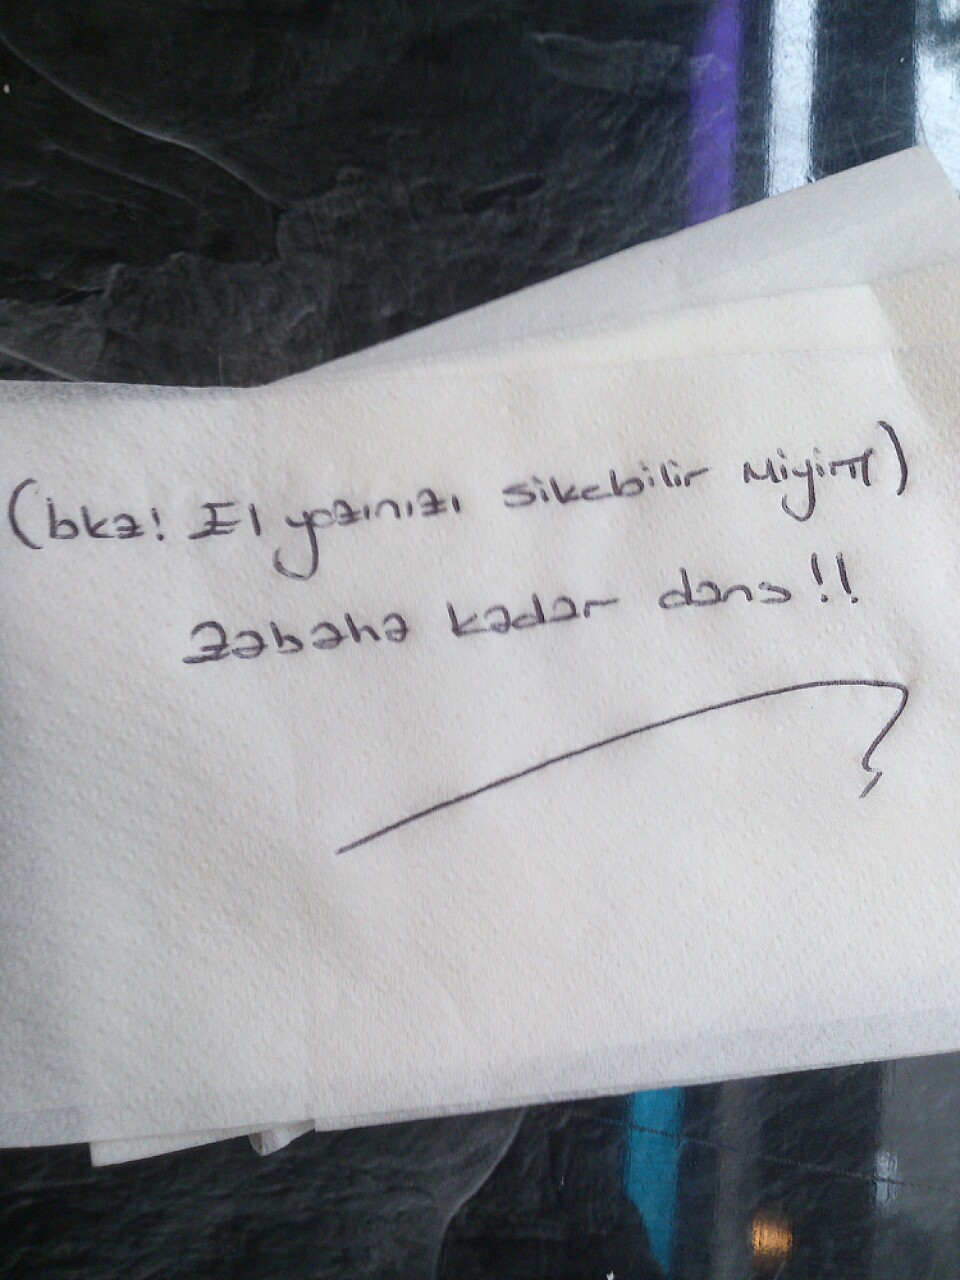 (bkz! El yazınızı sikebilir miyim)
Zabaha kadar dans!!